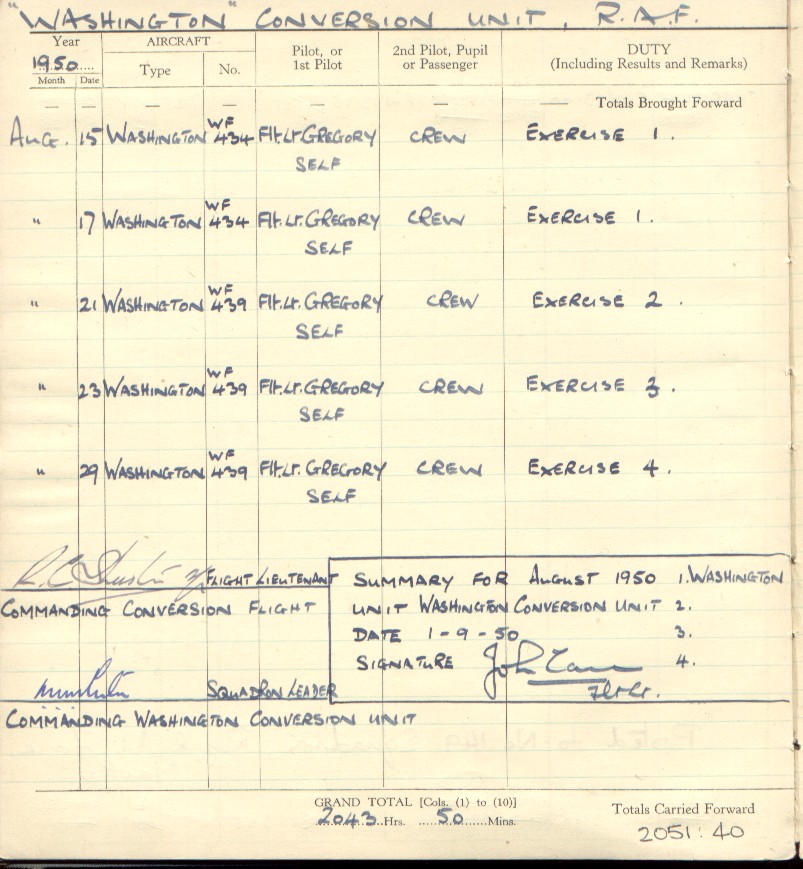 "WASHINGTON" CONVERSION UNIT, R.A.F.
Year AIRCRAFT Pilot, or 2nd Pilot, Pupil DUTY
1950 Type No. 1st Pilot or Passenger (Including Results and Remarks)
Month Date
— — — — — — — Totals Brought Forward
AUG. 15 WASHINGTON WF 434 Flt.Lt. GREGORY CREW EXERCISE 1.
SELF
" 17 WASHINGTON WF 434 Flt.Lt. GREGORY CREW EXERCISE 1.
SELF
" 21 WASHINGTON WF 439 Flt.Lt. GREGORY CREW EXERCISE 2.
SELF
" 23 WASHINGTON WF 439 Flt.Lt. GREGORY CREW EXERCISE 3.
SELF
" 29 WASHINGTON WF 439 Flt.Lt. GREGORY CREW EXERCISE 4.
SELF
FLIGHT LIEUTENANT SUMMARY FOR AUGUST 1950 1. WASHINGTON
COMMANDING CONVERSION FLIGHT UNIT WASHINGTON CONVERSION UNIT 2.
DATE 1-9-50 3.
SIGNATURE John 4.
SQUADRON LEADER Flt.Lt.
COMMANDING WASHINGTON CONVERSION UNIT
GRAND TOTAL [Cols. (1) to (10)] Totals Carried Forward
2043 Hrs. 50 Mins. 2051:40